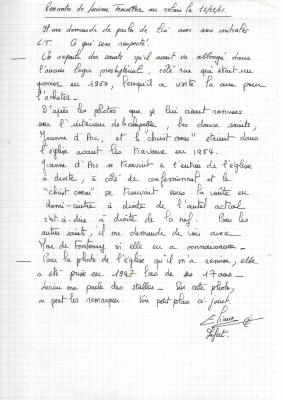 Rencontre de Lucien Trouttier au relais le 15/03/01.
Il me demande de parler de lui avec ses initiales
L.T. Ce qui sera respecté.
On reparle des saints qu'il avait vu allongé dans
l'ancien logis presbytéral, côté rue qui était un
grenier en 1957, lorsqu'il a visité la cure pour
l'acheter.
D'après les photos que je lui avait remises
sur l'intérieur de la chapelle, les deux saints,
Jeanne d'Arc et le "christ coeur" étaient dans
l'église avant les travaux en 1954.
Jeanne d'Arc se trouvait à l'entrée de l'église
à droite, à côté du confessionnal et le
"christ coeur" se trouvait sous la voûte en
demi-cintre à droite de l'autel actuel
c'est-à-dire à droite de la nef. Pour les
autres saints, il me demande de voir avec
Mme de Fontenay si elle en a connaissance -
Pour la photo de l'église qu'il m'a remise, elle
a été prise en 1947 lors de ses 17 ans -
Lucien me parle des stalles - Sur cette photo,
on peut les remarquer. Voir petit plan ci-joint.